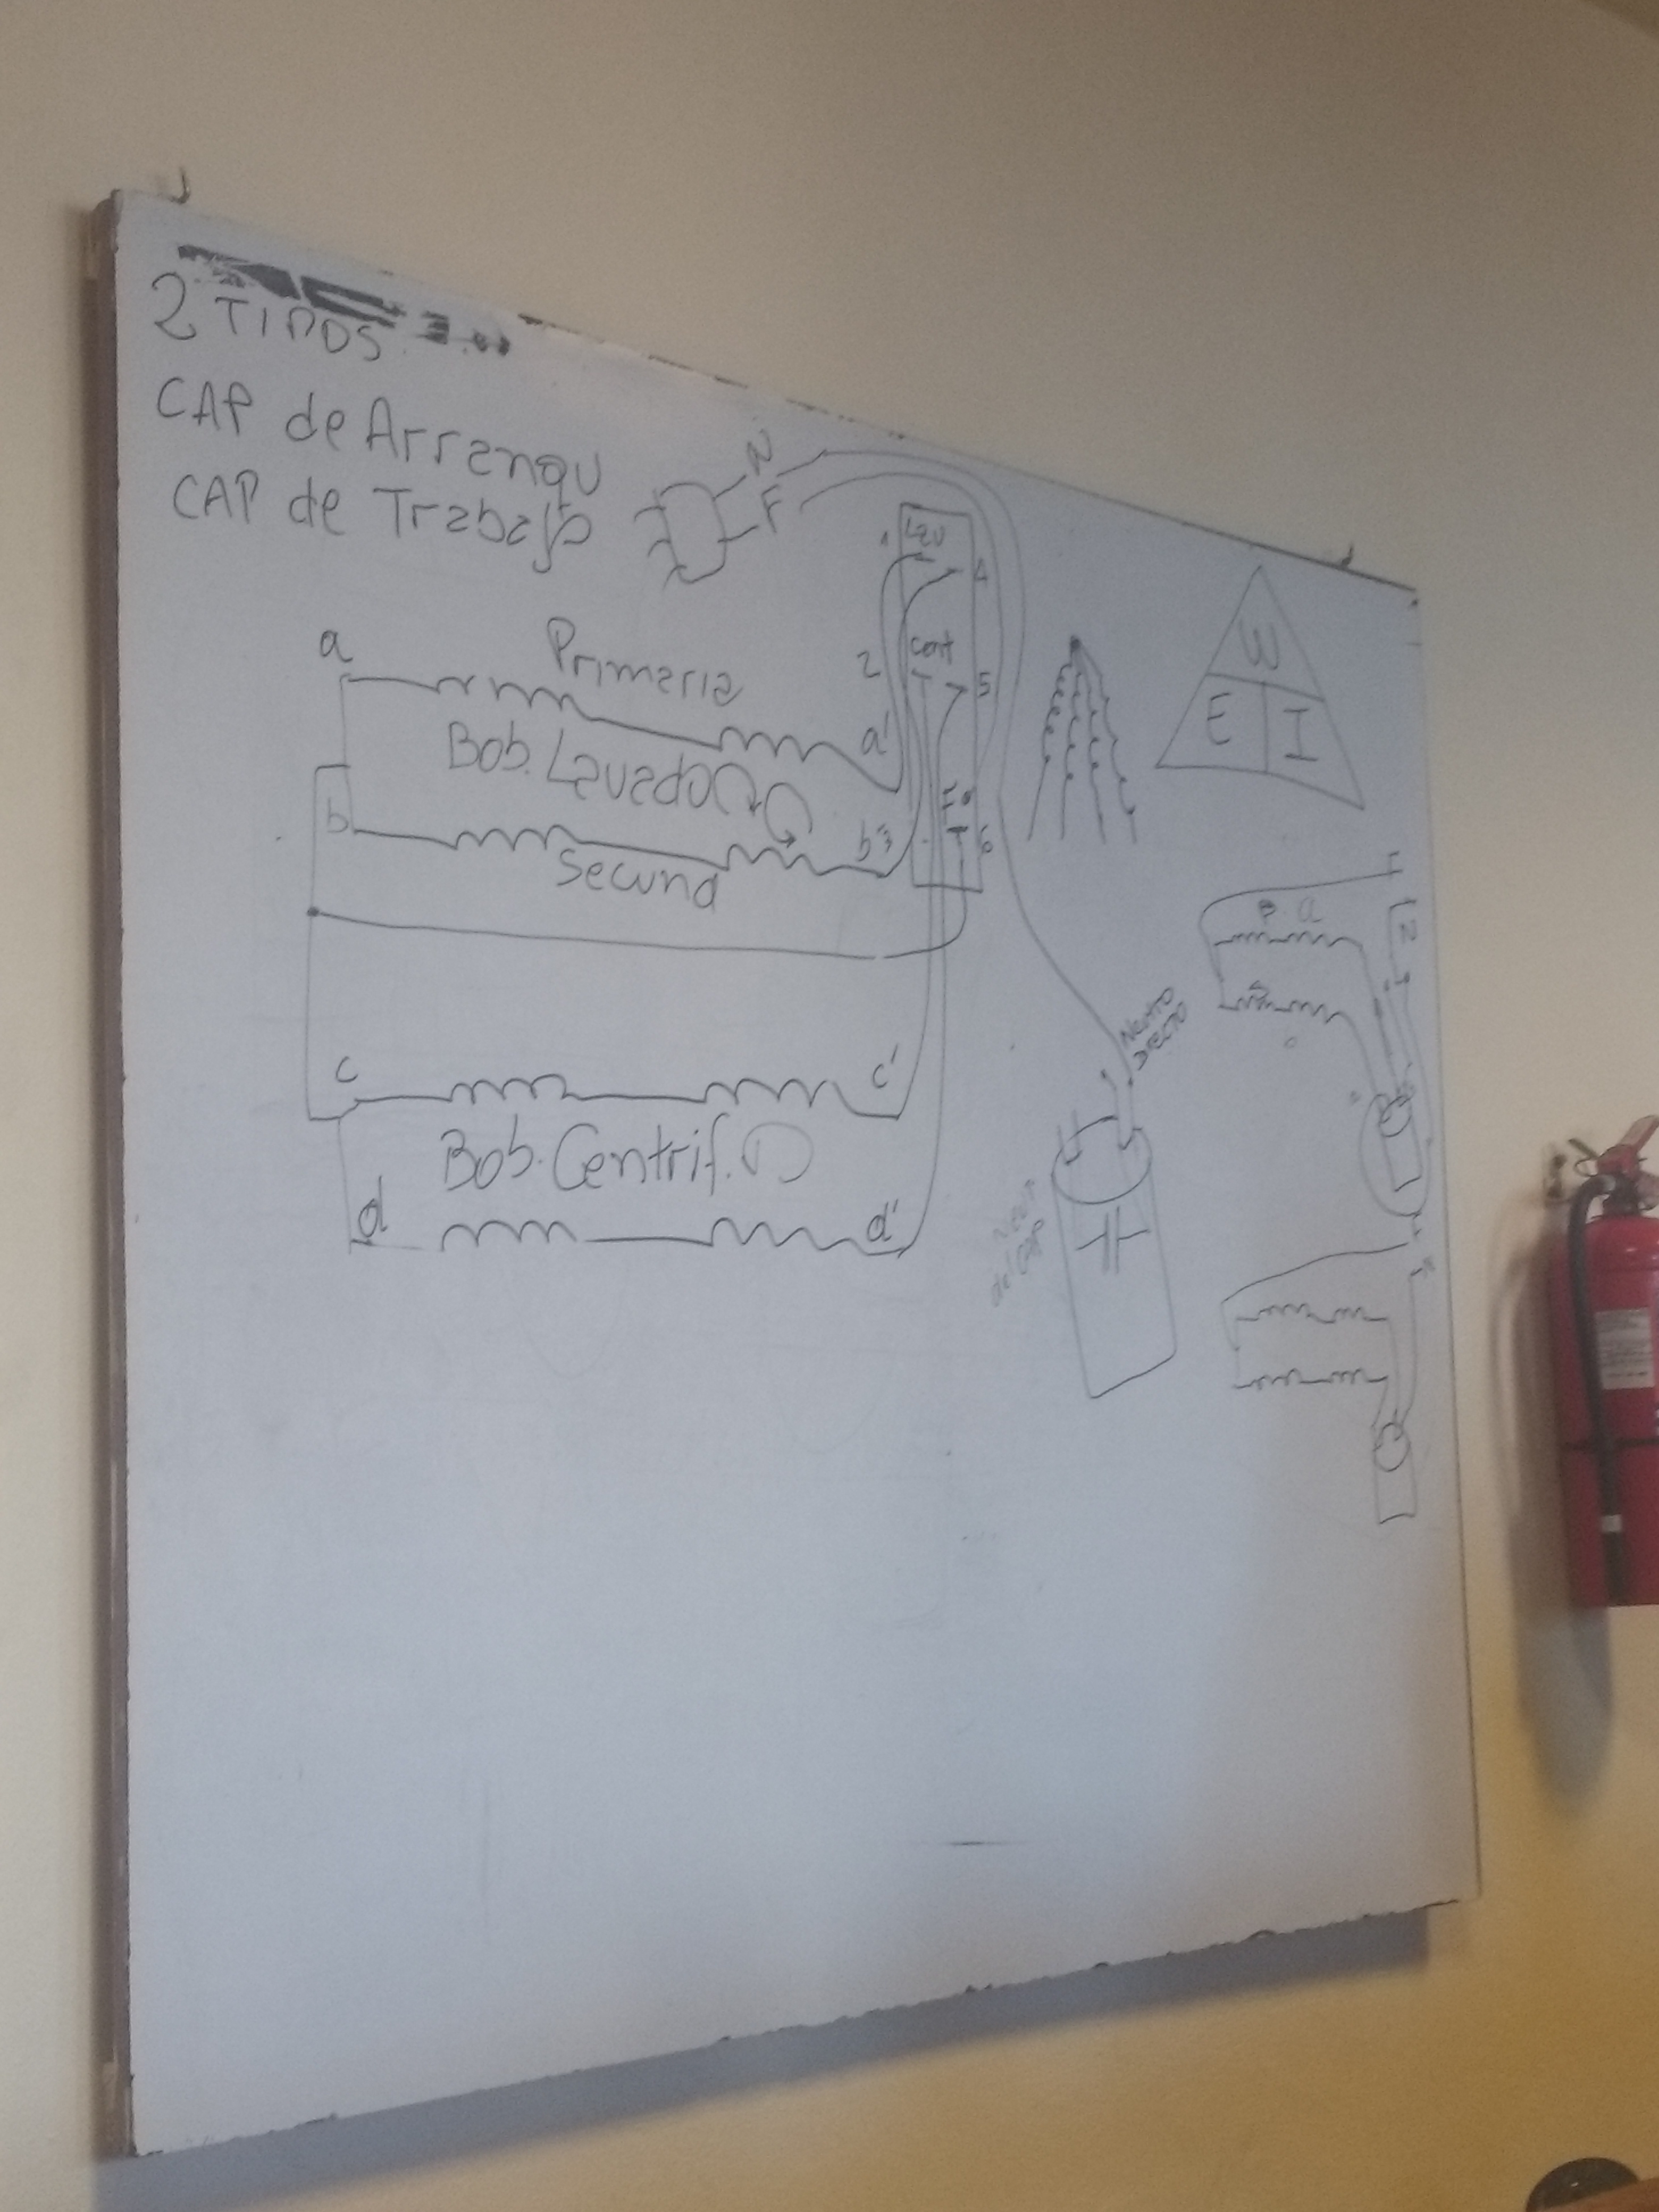 2 TIPOS
CAP de Arranqu
CAP de Trabajo
N
F
Lav
1
4
Cent
2
5
6
a
Primaria
a'
Bob. Lavado
b
b'
3
Secund
c
c'
Bob. Centrif.
d
d'
W
E I
Neutro
Directo
del Cap
4
P a
2